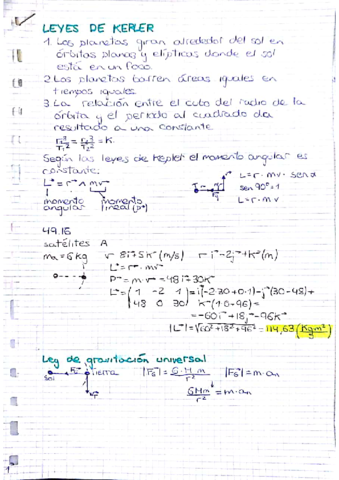 LEYES DE KEPLER
1. Los planetas giran alrededor del sol en
órbitas planas y elípticas, donde el sol
está en un foco.
2 Los planetas barren áreas iguales en
tiempos iguales.
3 La relación entre el cubo del radio de la
órbita y el periodo al cuadrado da
resultado a una constante.
r₁³/T₁² = r₂³/T₂² = K.
Según las leyes de Kepler el momento angular es
constante: L = r · mv · sen α
L⃗ = r⃗ ∧ mv⃗ sen 90º = 1
L = r · m · v
momento angular momento lineal (p⃗)
49.16
satélites A
m = 6 kg v = 8i + 5k (m/s) r = i - 2j + k (m)
L⃗ = r⃗ · mv⃗
P⃗ = m · v⃗ = 48i + 30k
L⃗ = (1 -2 1 = i(-2·30+0·1) - j(30-48) +
48 0 30) k(1·0+96) =
= -60i + 18j + 96k
|L⃗| = √60² + 18² + 96² = 114,63 (Kg m²/s)
Ley de gravitación universal
Sol Tierra |FG| = G·M·m/r² |FG| = m·an
GMm/r² = m·an
1